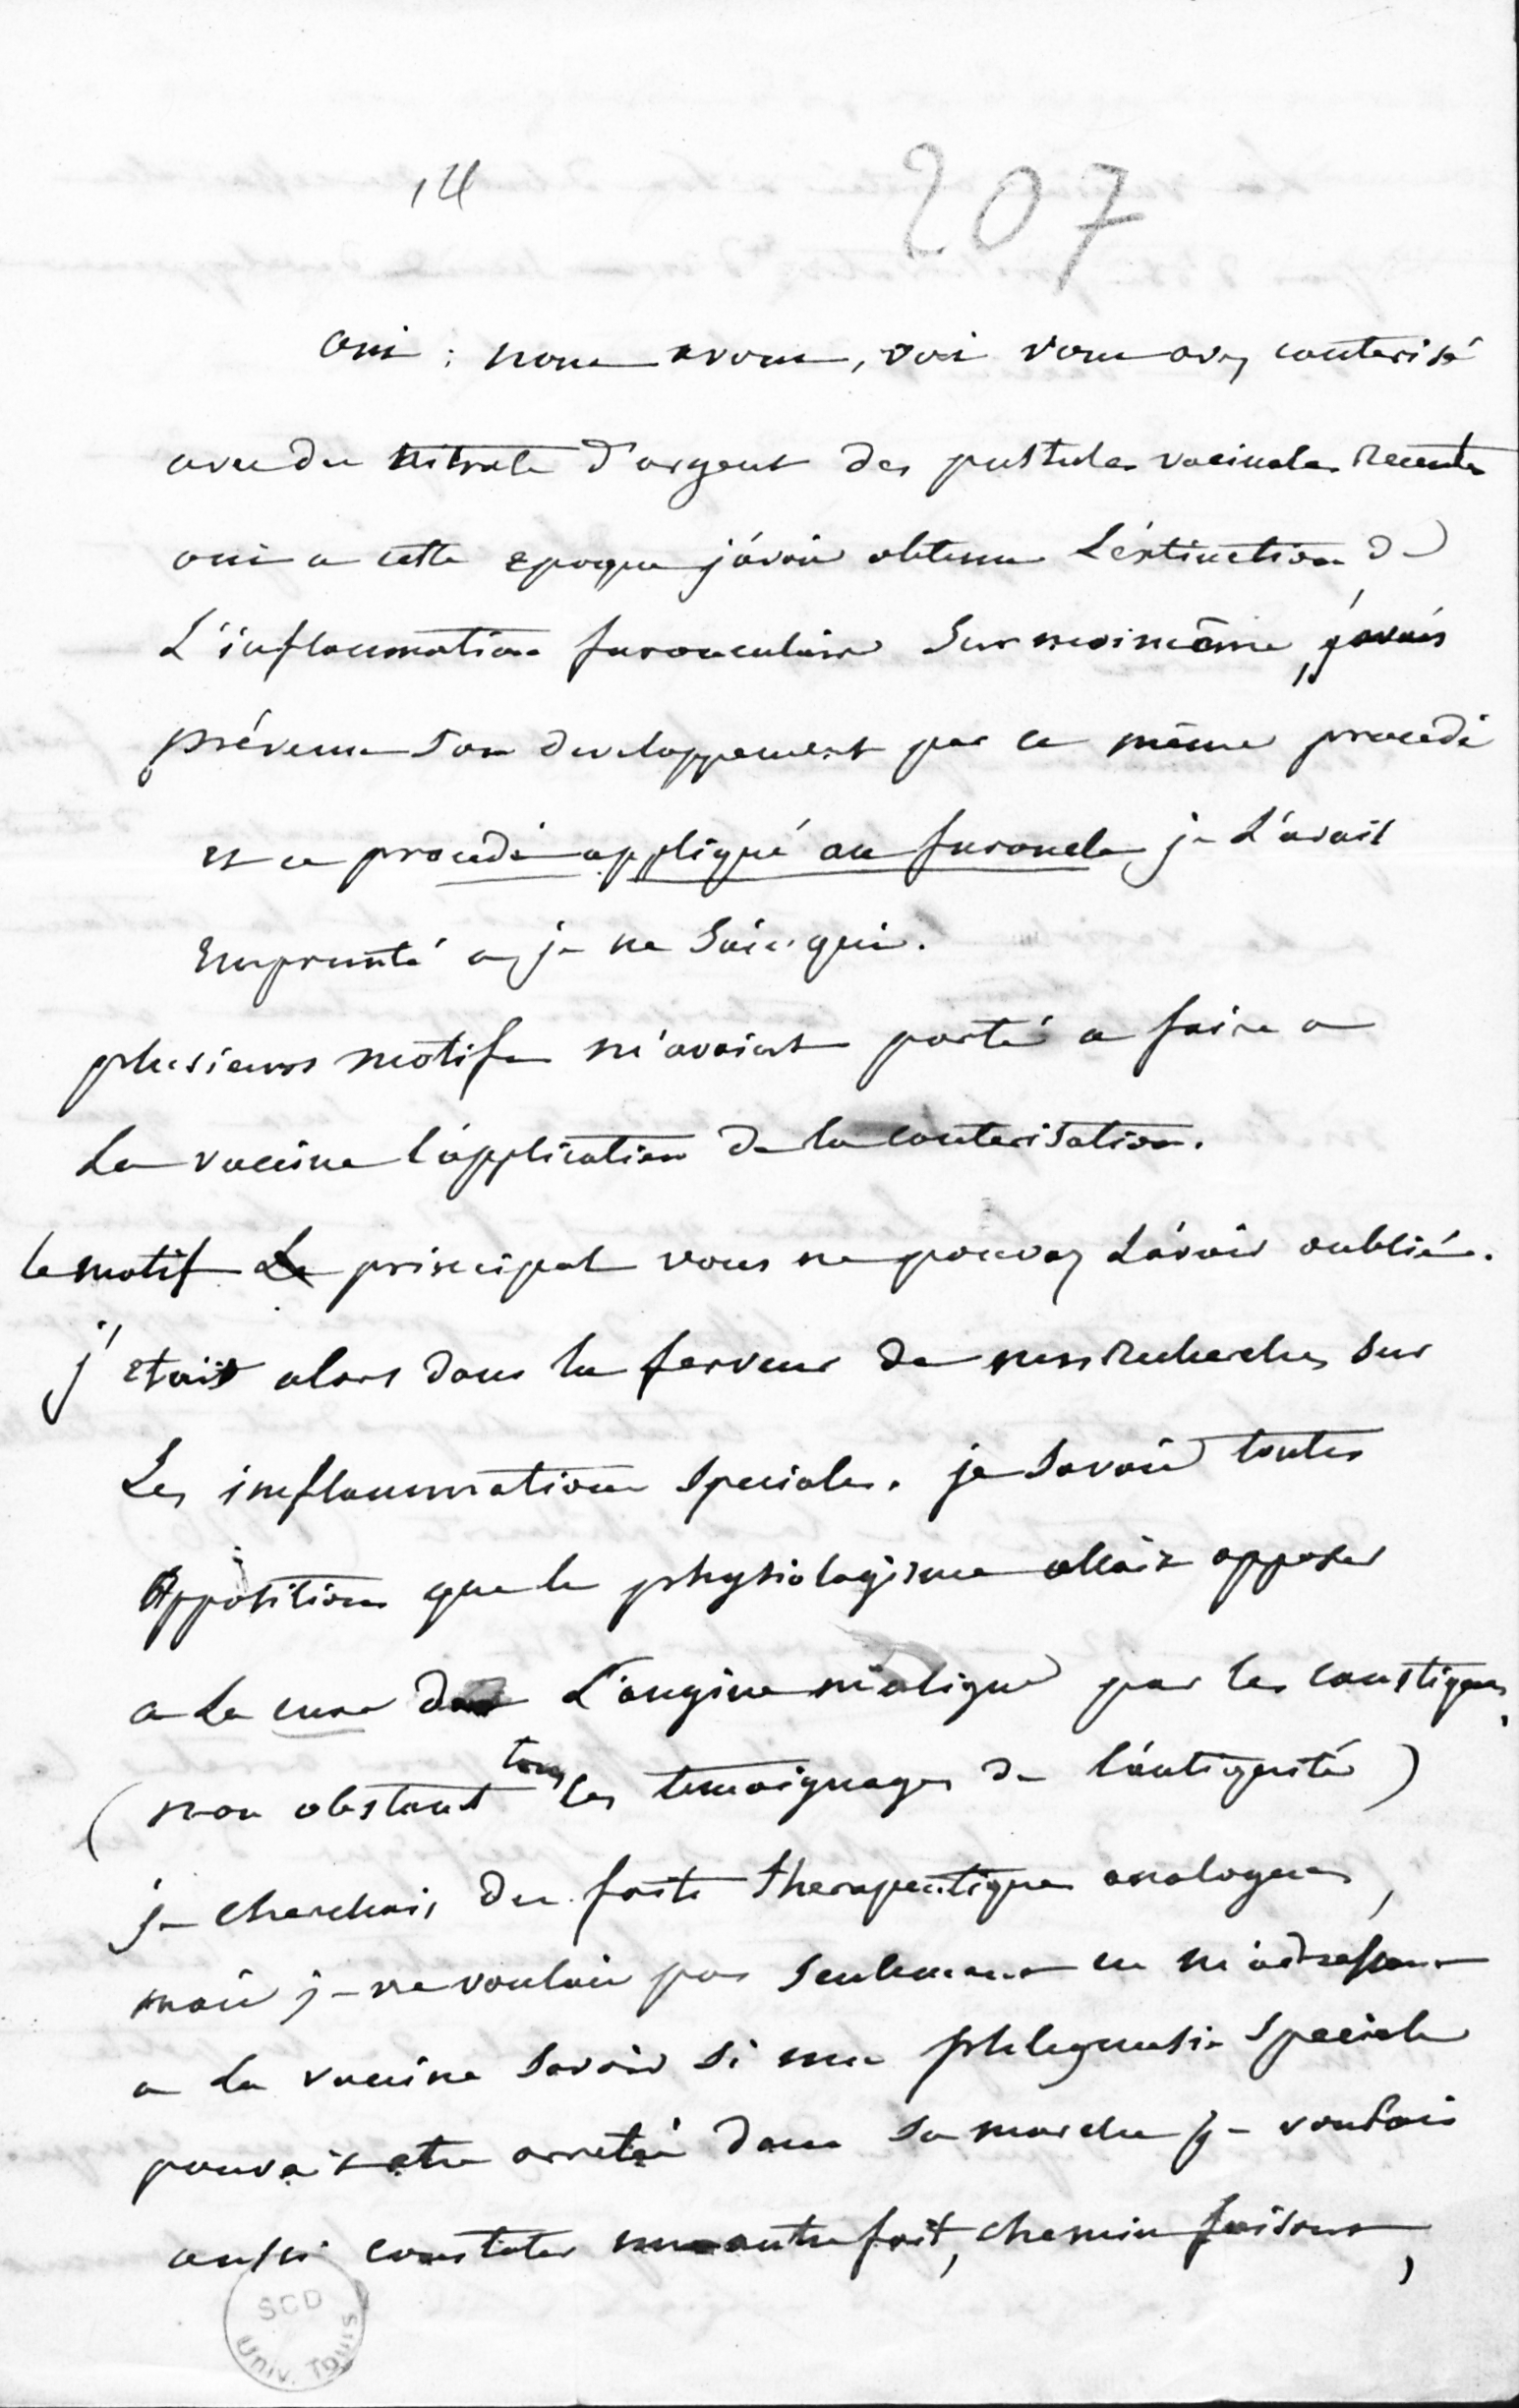 14
207
oui : nous avons, oui vous avez cauterisé
avec du nitrate d'argent des pustules vacinales recentes
oui a cette epoque j'avois obtenu L'extinction de
L'inflammation furonculaire Sur moi même, j'avais
prévenu son developpement par ce même procedé
et ce procedé appliqué au furoncle je L'avait
Emprunté a je ne Sais qui.
plusieurs motifs m'avoient porté a faire a
La vaccine l'application de la cauterisation.
le motif Le principal vous ne pouvez L'avoir oublié.
j'etais alors dans la ferveur de mes recherches sur
Les inflammations Speciales. je Savois toutes
Oppositions que le physiologisme allait opposer
a La cure de L'angine maligne par les caustiques,
(non obstant tous les temoignages de l'antiquité)
je cherchais des faits Therapeutiques analogues,
mais je ne voulois pas Seulement en m'adressant
a La vaccine Savoir Si une phlegmasie Speciale
pouvait etre arretée dans Sa marche je voulais
aussi constater un autre fait, chemin faisant,
SCD
Univ. Tours